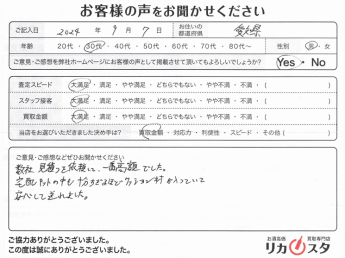 お客様の声をお聞かせください
ご記入日 2024年9月7日 お住いの都道府県 愛知県
年齢 20代・30代・40代・50代・60代・70代・80代〜 性別 男・女
ご意見・ご感想を弊社ホームページにお客様の声として掲載させて頂いてもよろしいでしょうか? Yes・No
査定スピード 大満足・満足・やや満足・どちらでもない・やや不満・不満・( )
スタッフ接客 大満足・満足・やや満足・どちらでもない・やや不満・不満・( )
買取金額 大満足・満足・やや満足・どちらでもない・やや不満・不満・( )
当店をお選びいただきました決め手は? 買取金額・対応力・利便性・スピード・その他( )
ご意見・ご感想などぜひお聞かせください
数社、見積りを依頼して、一番高額でした。
宅配キットの中も十分なほどクッション材が入っていて
安心して送れました。
ご協力ありがとうございました。
この度は誠にありがとうございました。
お酒高価買取専門店
リカスタ